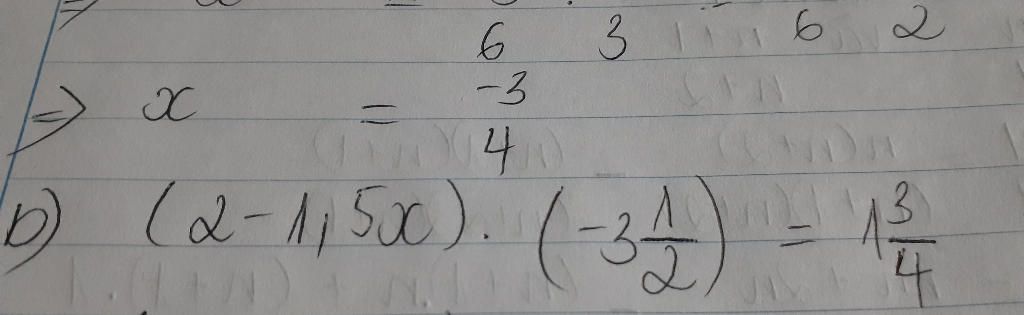 6 3 6 2
=> x = -3/4
b) (2 - 1,5x) . (-3 1/2) = 1 3/4